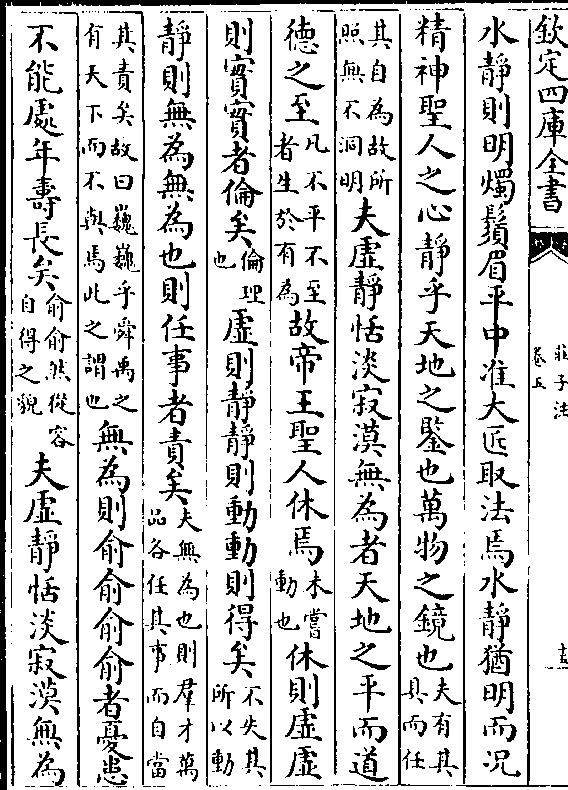 欽定四庫全書
莊子注
卷五
水靜則明燭鬚眉平中准大匠取法焉水靜猶明而况
精神聖人之心靜乎天地之鑒也萬物之鏡也夫有其具而任
其自為故所照無不洞明夫虛靜恬淡寂漠無為者天地之平而道
德之至凡不平不至者生於有為故帝王聖人休焉未嘗動也休則虛虛
則實實者倫矣倫理也虛則靜靜則動動則得矣不失其所以動
靜則無為無為也則任事者責矣夫無為也則羣才萬品各任其事而自當
其責矣故曰巍巍乎舜禹之有天下而不與焉此之謂也無為則俞俞俞俞者憂患
不能處年壽長矣俞俞然從容自得之貌夫虛靜恬淡寂漠無為